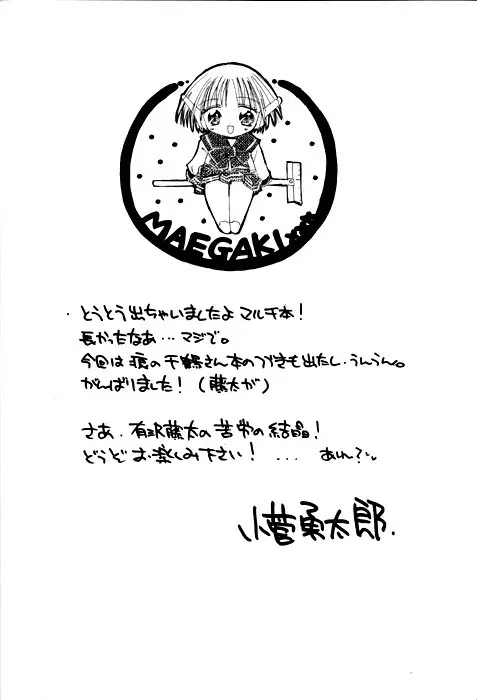 MAEGAKI
・とうとう出ちゃいましたよ マルチ本！
長かったなあ…マジで。
今回は 痕の千鶴さん本のつづきも出たし、うんうん。
がんばりました！（藤太が）
さあ、有沢藤太の苦労の結晶！
どうぞ お楽しみ下さい！ ...
小菅勇太郎.